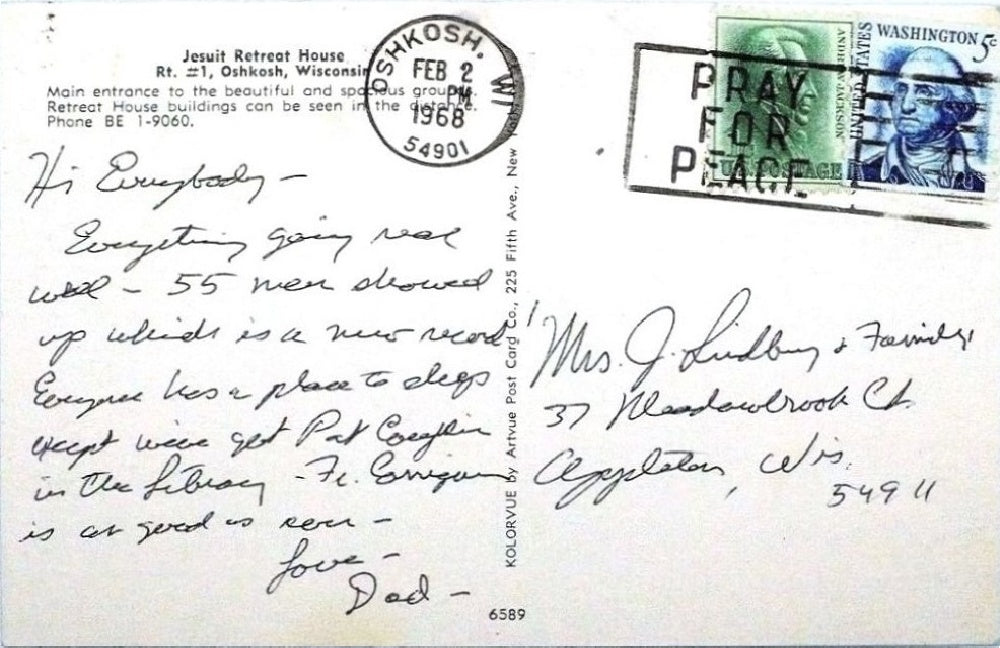 Jesuit Retreat House
Rt. #1, Oshkosh, Wisconsin
Main entrance to the beautiful and spacious grounds.
Retreat House buildings can be seen in the distance.
Phone BE 1-9060.
OSHKOSH, WI
FEB 2
PM
1968
54901
PRAY
FOR
PEACE
ANDREW JACKSON
U.S. POSTAGE
UNITED STATES
WASHINGTON 5c
Hi Everybody -
Everything going real
well - 55 men showed
up which is a new record!
Everyone has a place to sleep
except we've got Pat Coughlin
in the Library - Fr. Corrigan
is as good as ever -
Love -
Dad -
KOLORVUE by Artvue Post Card Co., 225 Fifth Ave., New
6589
Mrs. J. Lindbury & Family
37 Meadowbrook Ct.
Appleton, Wis.
54911